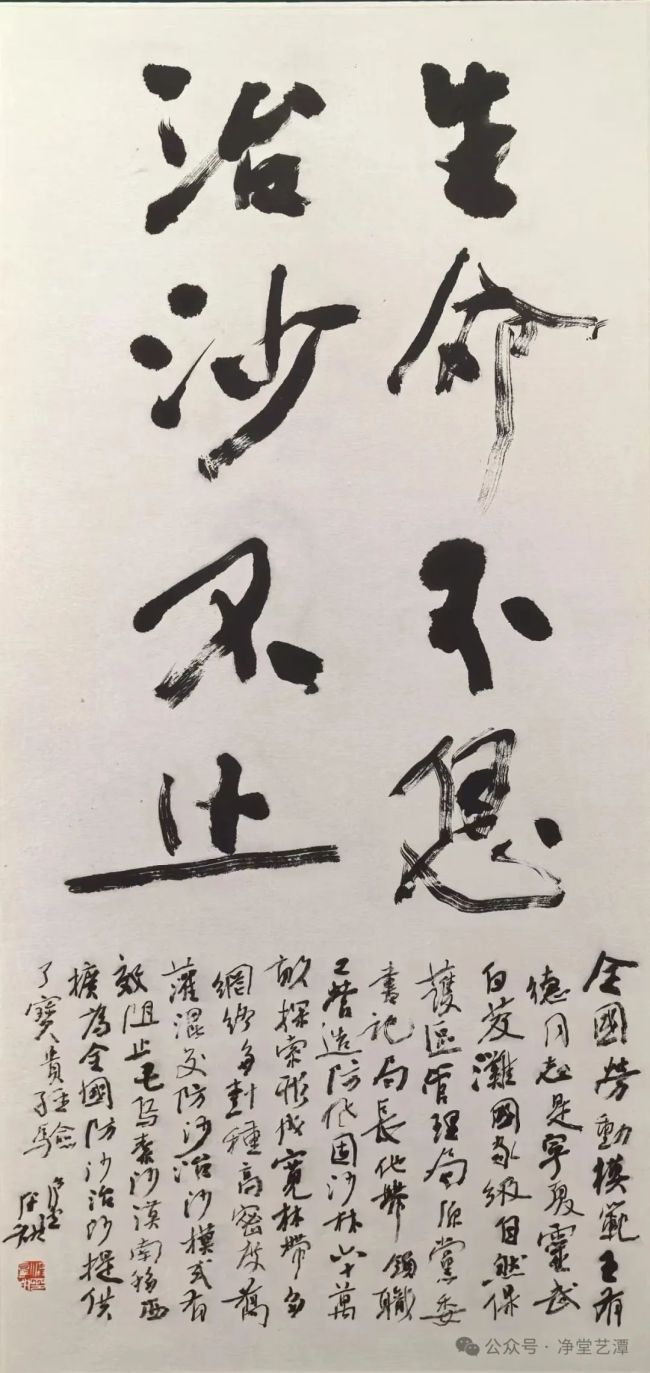 生命不息
治沙不止
全國勞動模範王有
德同志是宁夏靈武
白芨灘國家級自然保
護區管理局原黨委
書記局長他帶領職
工營造防风固沙林六十萬
畝探索形成寬林帶多
網絡多樹種高密度喬
灌混交防沙治沙模式有
效阻止毛烏素沙漠南移西
擴為全國防沙治沙提供
了寶貴經驗
公众号 · 净堂艺潭